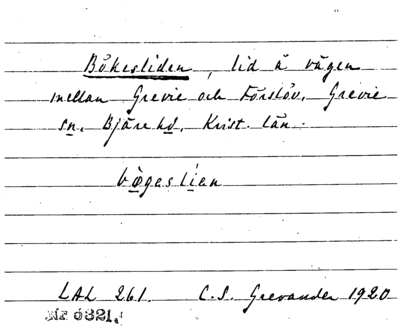 Bökesliden, lid å vägen
mellan Grevie och Förslöv, Grevie
sn, Bjäre hd, Krist. län.
bögeslien
LAL 261. C.S. Grevander 1920
Nr 6321.